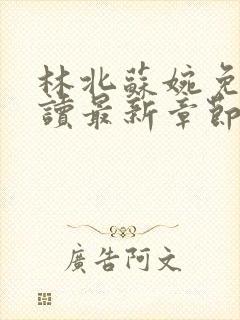 林北蘇婉免
讀最新章節
廣告阿文